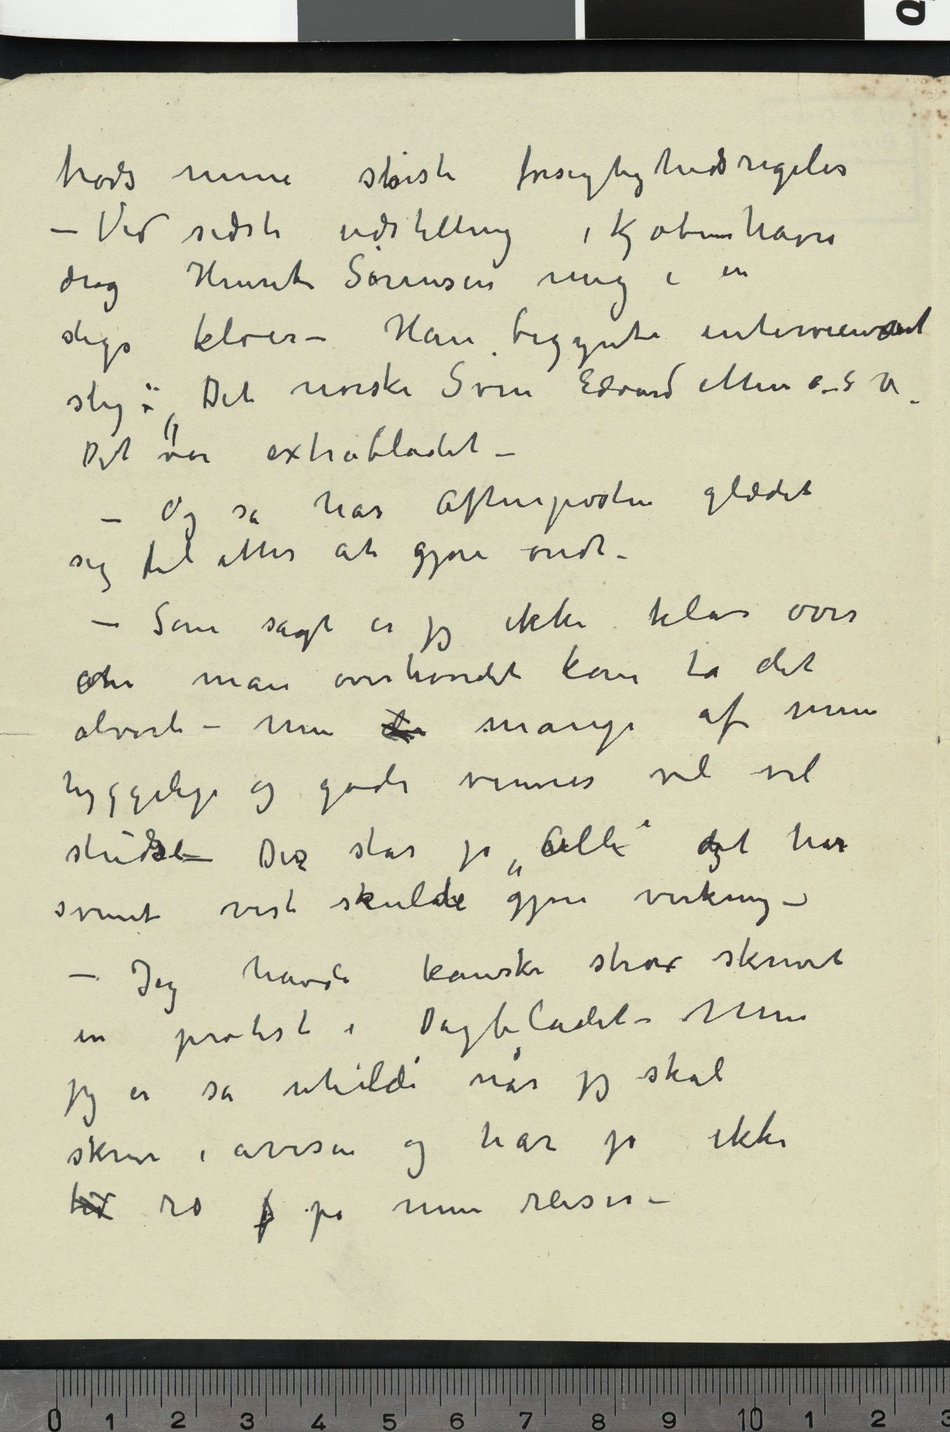 trods mine største forsigtighedsregeler
– Ved sidste udstilling i Kjøbenhavn
drog Henrik Sørensen mig i en
slags kløer – Han begynte interviewet
slig: „Det norske Svin Edvard Munch o.s.v.
Det var extrabladet –
– Og så har Aftenposten glædet
sig til atter at gjøre ondt –
– Som sagt er jeg ikke klar over
om man overhovedet kan ta det
alvorli – men mange af mine
hyggelige og gode venner vil vel
studse – Der står jo „Alle“ det har
svinet vist skulde gjøre virkning –
– Jeg havde kanske strax skrevet
en protest i Dagbladet – Men
jeg er så uheldi når jeg skal
skrive i avisen og har jo ikke
ro på mine reiser –